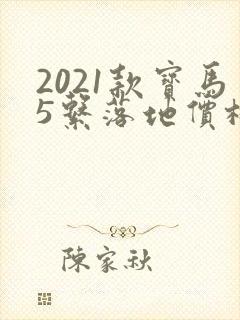 2021款寶馬
5繫落地價格
陳家秋